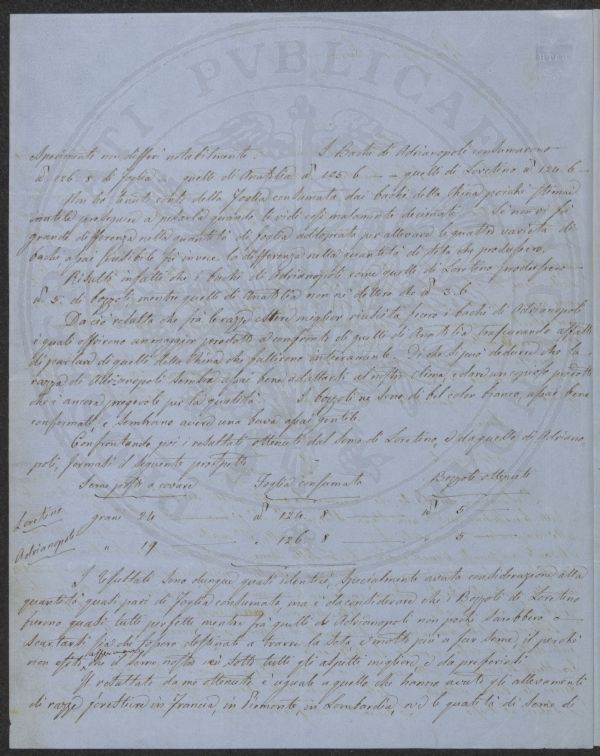 esperimenti non differì notabilmente. I Bachi di Adrianopoli consumarono
126. 8. di foglia — quelli di Anatolia 105. 6 — e quelli di Loretino 124. 8 —
Non ho tenuti conti della foglia consumata dai bachi della China poichè stimai
inutile proseguire a pesarla quando le vidi così malamente decimate. Se non vi fu
grande differenza nella quantità di foglia adoprata per allevare le quattro varietà di
bachi assai sensibile fu invece la differenza nella quantità di seta che produssero.
Risultò infatti che i bachi di Adrianopoli come quelli di Loretino produssero
5. di bozzoli, mentre quelli di Anatolia non ne dettero che 3. 6
Da ciò resulta che fra le razze estere miglior riuscita fecero i bachi di Adrianopoli
i quali offrirono un maggior prodotto a confronto di quelli di Anatolia trascurando affatto
di parlare di quelli della China che fallirono interamente. Di che si può dedurre che la
razza di Adrianopoli sembra assai bene adattarsi al nostro clima, e dare un copioso prodotto
che è ancora pregevole per la qualità. I bozzoli ne sono di bel color bianco, assai bene
conformati, e sembrano avere una bava assai gentile.
Confrontando poi i resultati ottenuti dal seme di Loretino e da quello di Adriano-
poli, formasi il seguente prospetto
Seme posto a covare Foglia consumata Bozzoli ottenuti
Loretino grani 24 — 124. 8 — 5 —
Adrianopoli " 19 — " 126. 8 — " 5
I resultati sono dunque quasi identici, specialmente avuta considerazione alla
quantità quasi pari di foglia consumata, ma è da considerare che i Bozzoli di Loretino
furono quasi tutti perfetti mentre fra quelli di Adrianopoli non pochi sarebbero a
scartarsi sia che fossero destinati a trarre la seta, o molti più a far seme, il perchè
non esito che il seme nostro sia sotto tutti gli aspetti migliore, e da preferirsi
Il resultato da me ottenuto è uguale a quello che hanno avuto gli allevamenti
di razze forestiere in Francia, in Piemonte, in Lombardia, ove le qualità di seme di